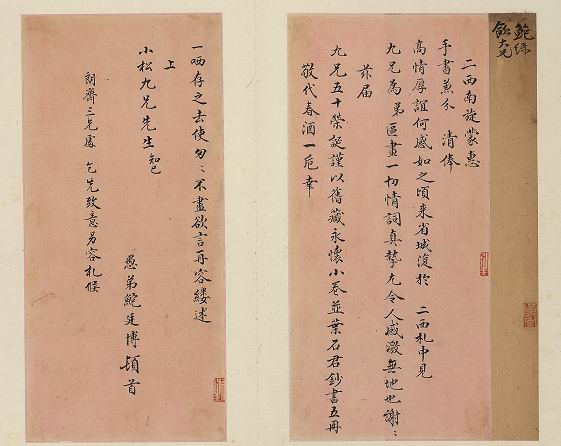 鮑綠
飲大兄
二西南旋蒙惠
手書兼承 清俸
高情厚誼何感如之頃来省城復於 二西札中見
九兄為弟區畫一切情詞真摯尤令人感激無地也謝〻
茲届
九兄五十榮誕謹以舊藏永懷小卷並葉石君鈔書五冊
敬代春酒一卮幸
一哂存之去使匆〻不盡欲言再容縷述
上
小松九兄先生 知己
朗齋三兄處 乞先致意另容札候
愚弟鮑廷博頓首